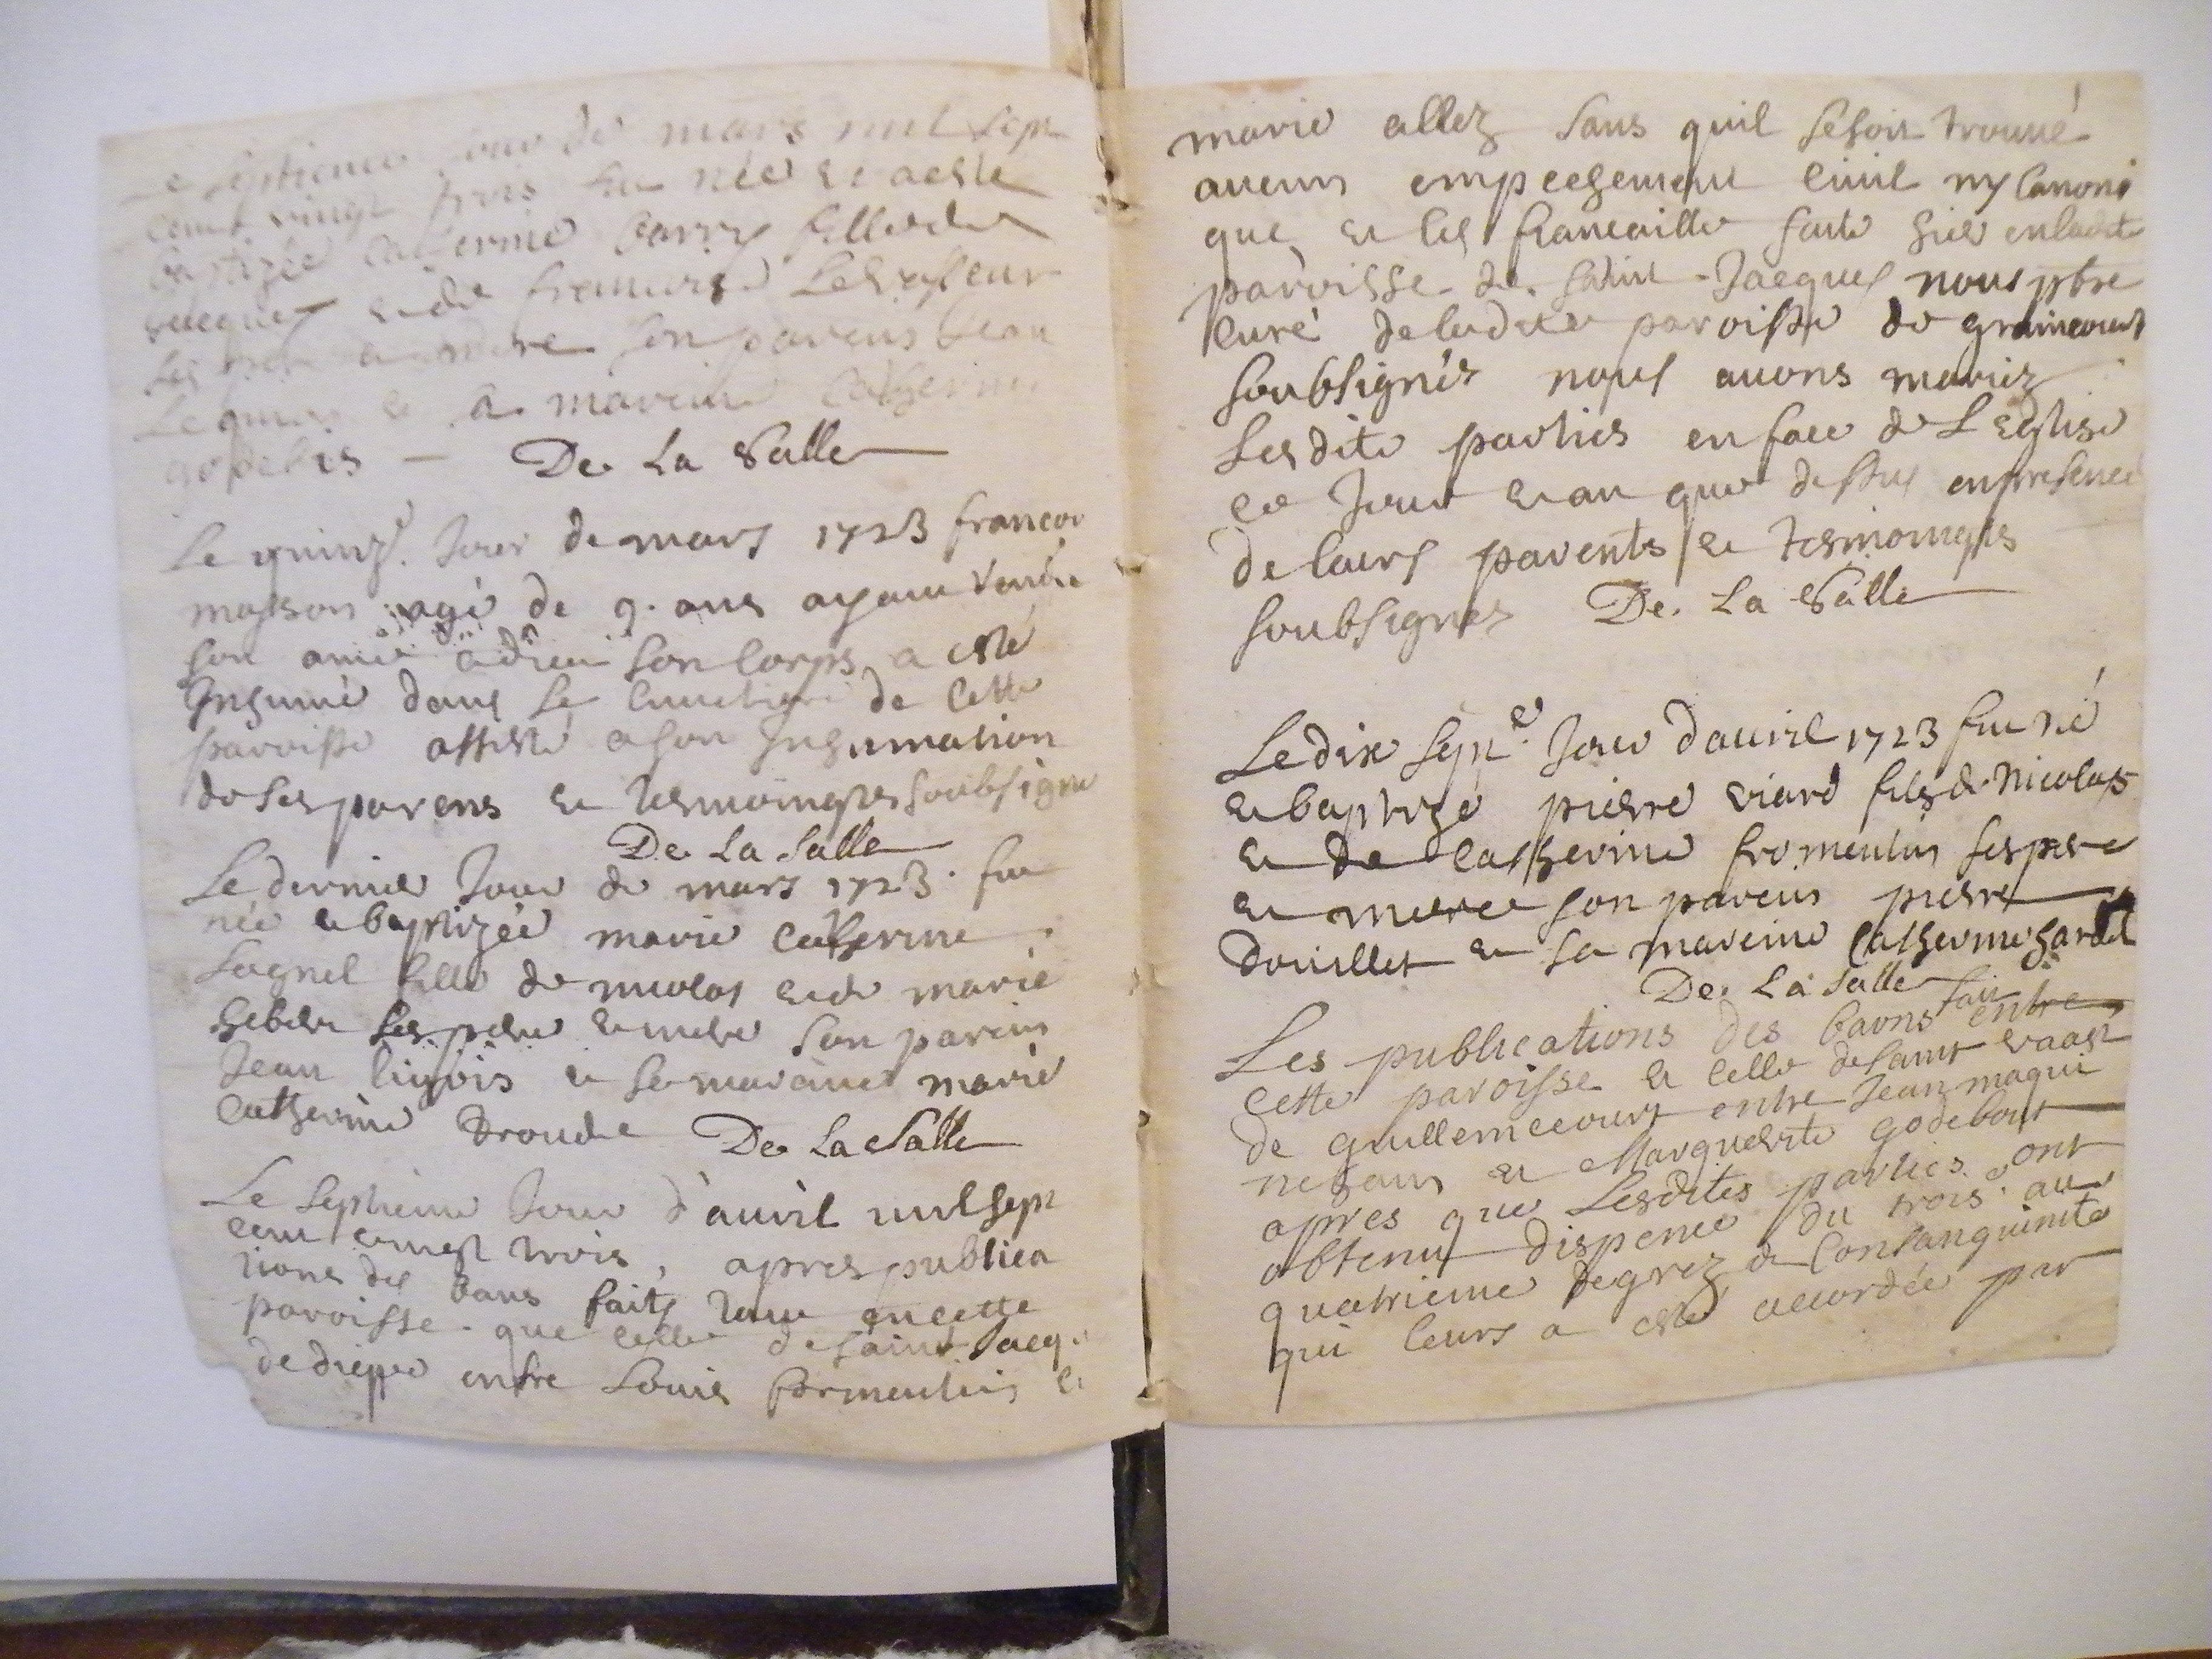 septieme jour de mars mil sept
cent vingt trois fut née et a esté
baptizée catherine carry fille de
jacques et de
ses pere et mere son parein jean
et sa mareine catherine
De La Salle
Le quinz.e jour de mars 1723 francoi
maison agé de 9. ans ayant rendu
son ame a dieu son corps a esté
Inhumé dans le cimetiere de cette
paroisse assisté a son Inhumation
de ses parens et tesmoingts soubsigne
De La Salle
Le dernier Jour de mars 1723. fut
née et baptizée marie catherine
Lagnel fille de nicolas et de marie
hebert ses pere et mere son parein
Jean et sa mareine marie
catherine Droude De La Salle
Le septieme Jour d'auril mil sept
cent vingt trois, apres publica
tions des bans faits tant en cette
paroisse que celle de saint Jacq.
de dieppe entre Louis formentin et
marie allez sans quil se soit trouué
aucun empeschement ciuil ny canoni
que et les fiancailles faite hier en ladite
paroisse de saint Jacques nous pbre
curé de ladite paroisse de graincourt
soubsignéz nous auons mariez
Les dite parties en face de L'eglise
ce Jour et an que dessus en presence
de leurs parents et tesmoingts
soubsignez De La Salle
Le dix sept.e Jour d'auril 1723 fut né
et baptizé pierre viard fils de nicolas
et de catherine fromentin ses pere
et mere son parein pierre
Douillet et sa mareine Catherine hardel
De La Salle
Les publications des banns fait entre
cette paroisse et celle de saint vaast
de guillemecourt entre Jean maqui
neham et Marguerite godebout
apres que Lesdites parties ont
obtenu dispence du trois.e au
quatrieme degrez de consanguinite
qui leurs a esté accordée par